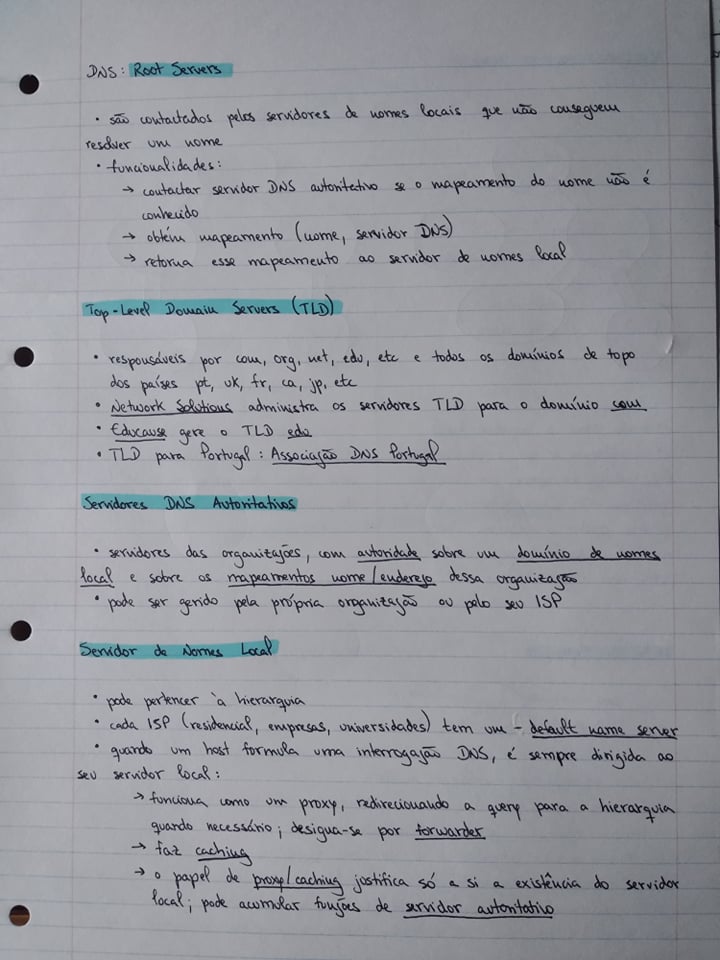 DNS: Root Servers
• são contactados pelos servidores de nomes locais que não conseguem
resolver um nome
• funcionalidades:
→ contactar servidor DNS autoritativo se o mapeamento do nome não é
conhecido
→ obtém mapeamento (nome, servidor DNS)
→ retorna esse mapeamento ao servidor de nomes local
Top-Level Domain Servers (TLD)
• responsáveis por com, org, net, edu, etc e todos os domínios de topo
dos países pt, uk, fr, ca, jp, etc
• Network Solutions administra os servidores TLD para o domínio com
• Educause gere o TLD edo
• TLD para Portugal: Associação DNS Portugal
Servidores DNS Autoritativos
• servidores das organizações, com autoridade sobre um domínio de nomes
local e sobre os mapeamentos nome/endereço dessa organização
• pode ser gerido pela própria organização ou pelo seu ISP
Servidor de Nomes Local
• pode pertencer à hierarquia
• cada ISP (residencial, empresas, universidades) tem um - default name server
• quando um host formula uma interrogação DNS, é sempre dirigida ao
seu servidor local:
→ funciona como um proxy, redirecionando a query para a hierarquia
quando necessário; designa-se por forwarder
→ faz caching
→ o papel de proxy/caching justifica só a si a existência do servidor
local; pode acumular funções de servidor autoritativo